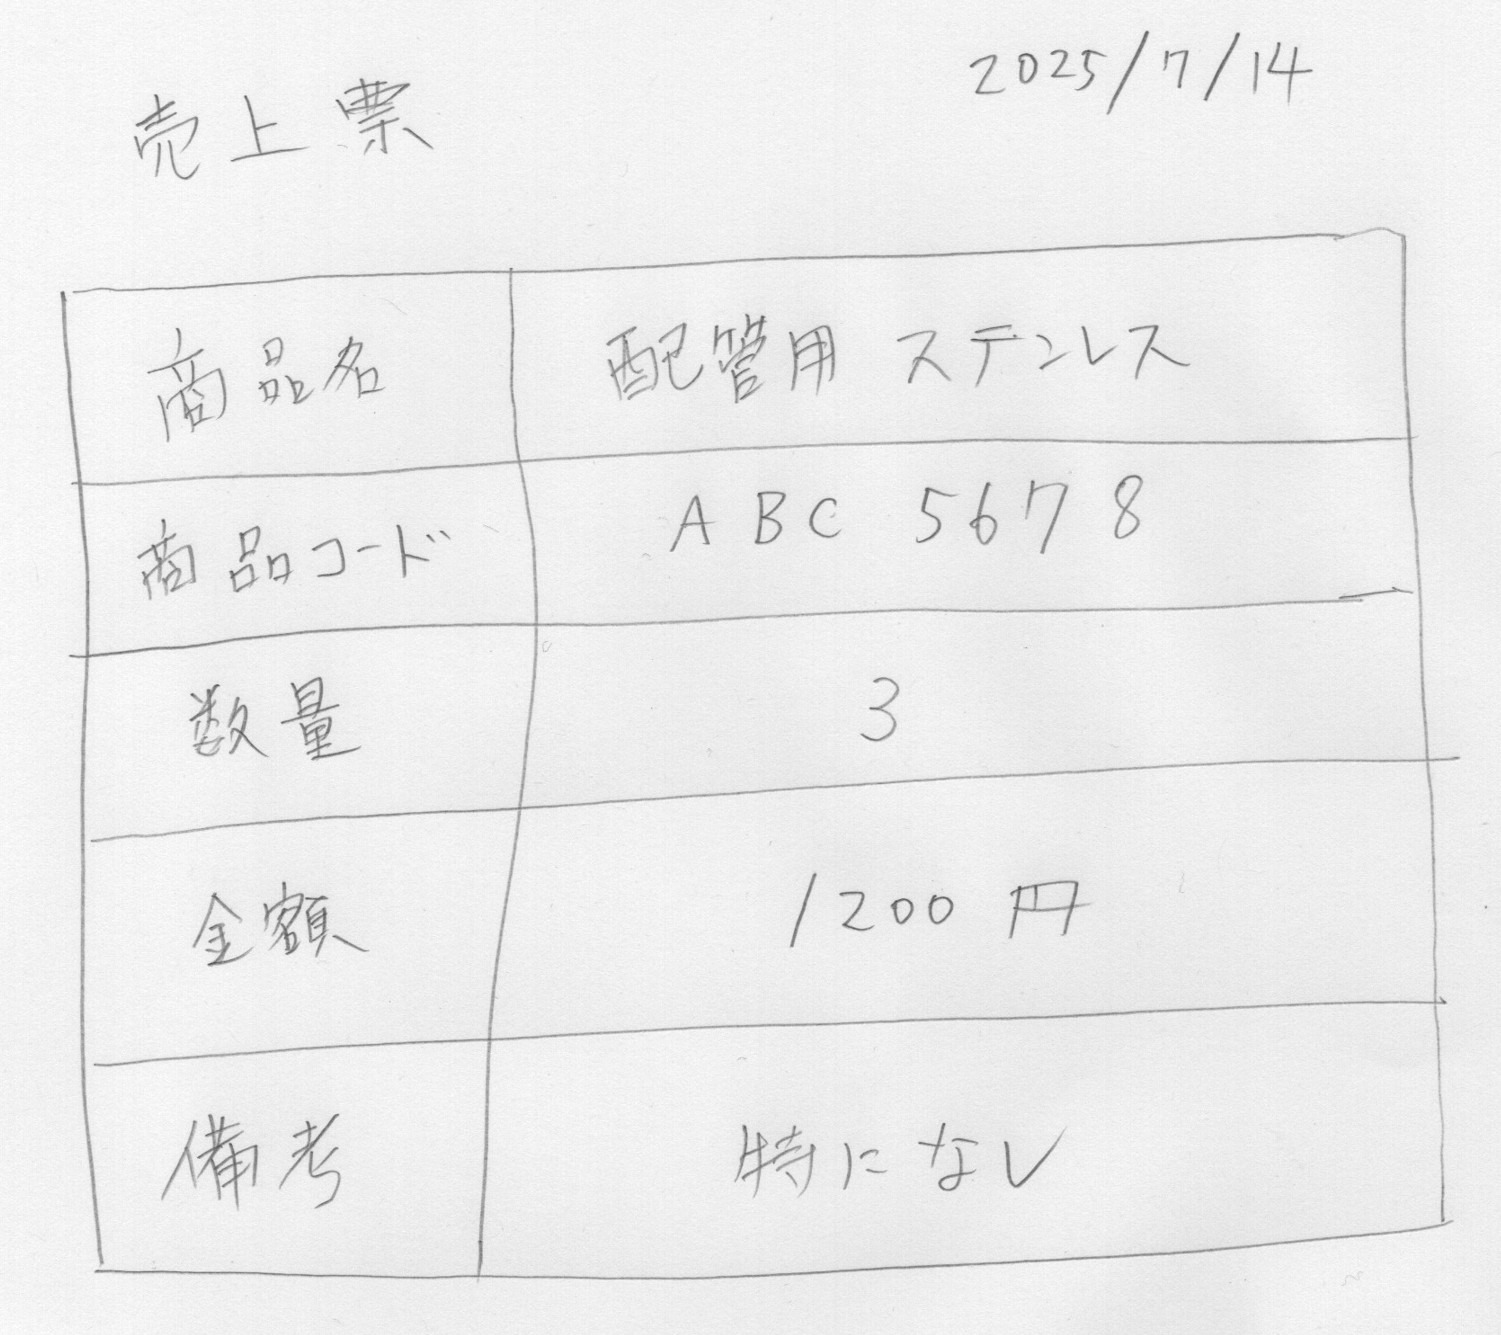 2025/7/14
売上票
商品名 配管用 ステンレス
商品コード ABC 5678
数量 3
金額 1200 円
備考 特になし